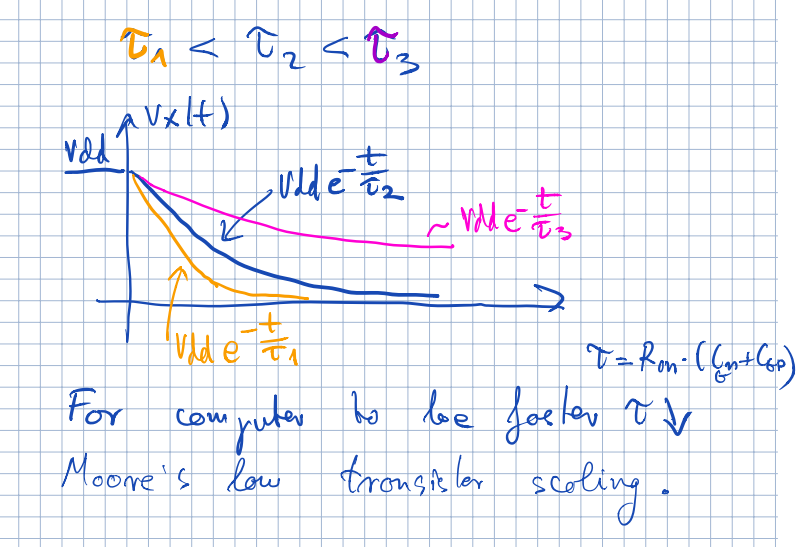 τ₁ < τ₂ < τ₃
Vx(t)
Vdd
Vdd e^(-t/τ₂)
~ Vdd e^(-t/τ₃)
Vdd e^(-t/τ₁)
τ = Ron · (CGn + CGp)
For computer to be faster τ ↓
Moore's law transistor scaling.